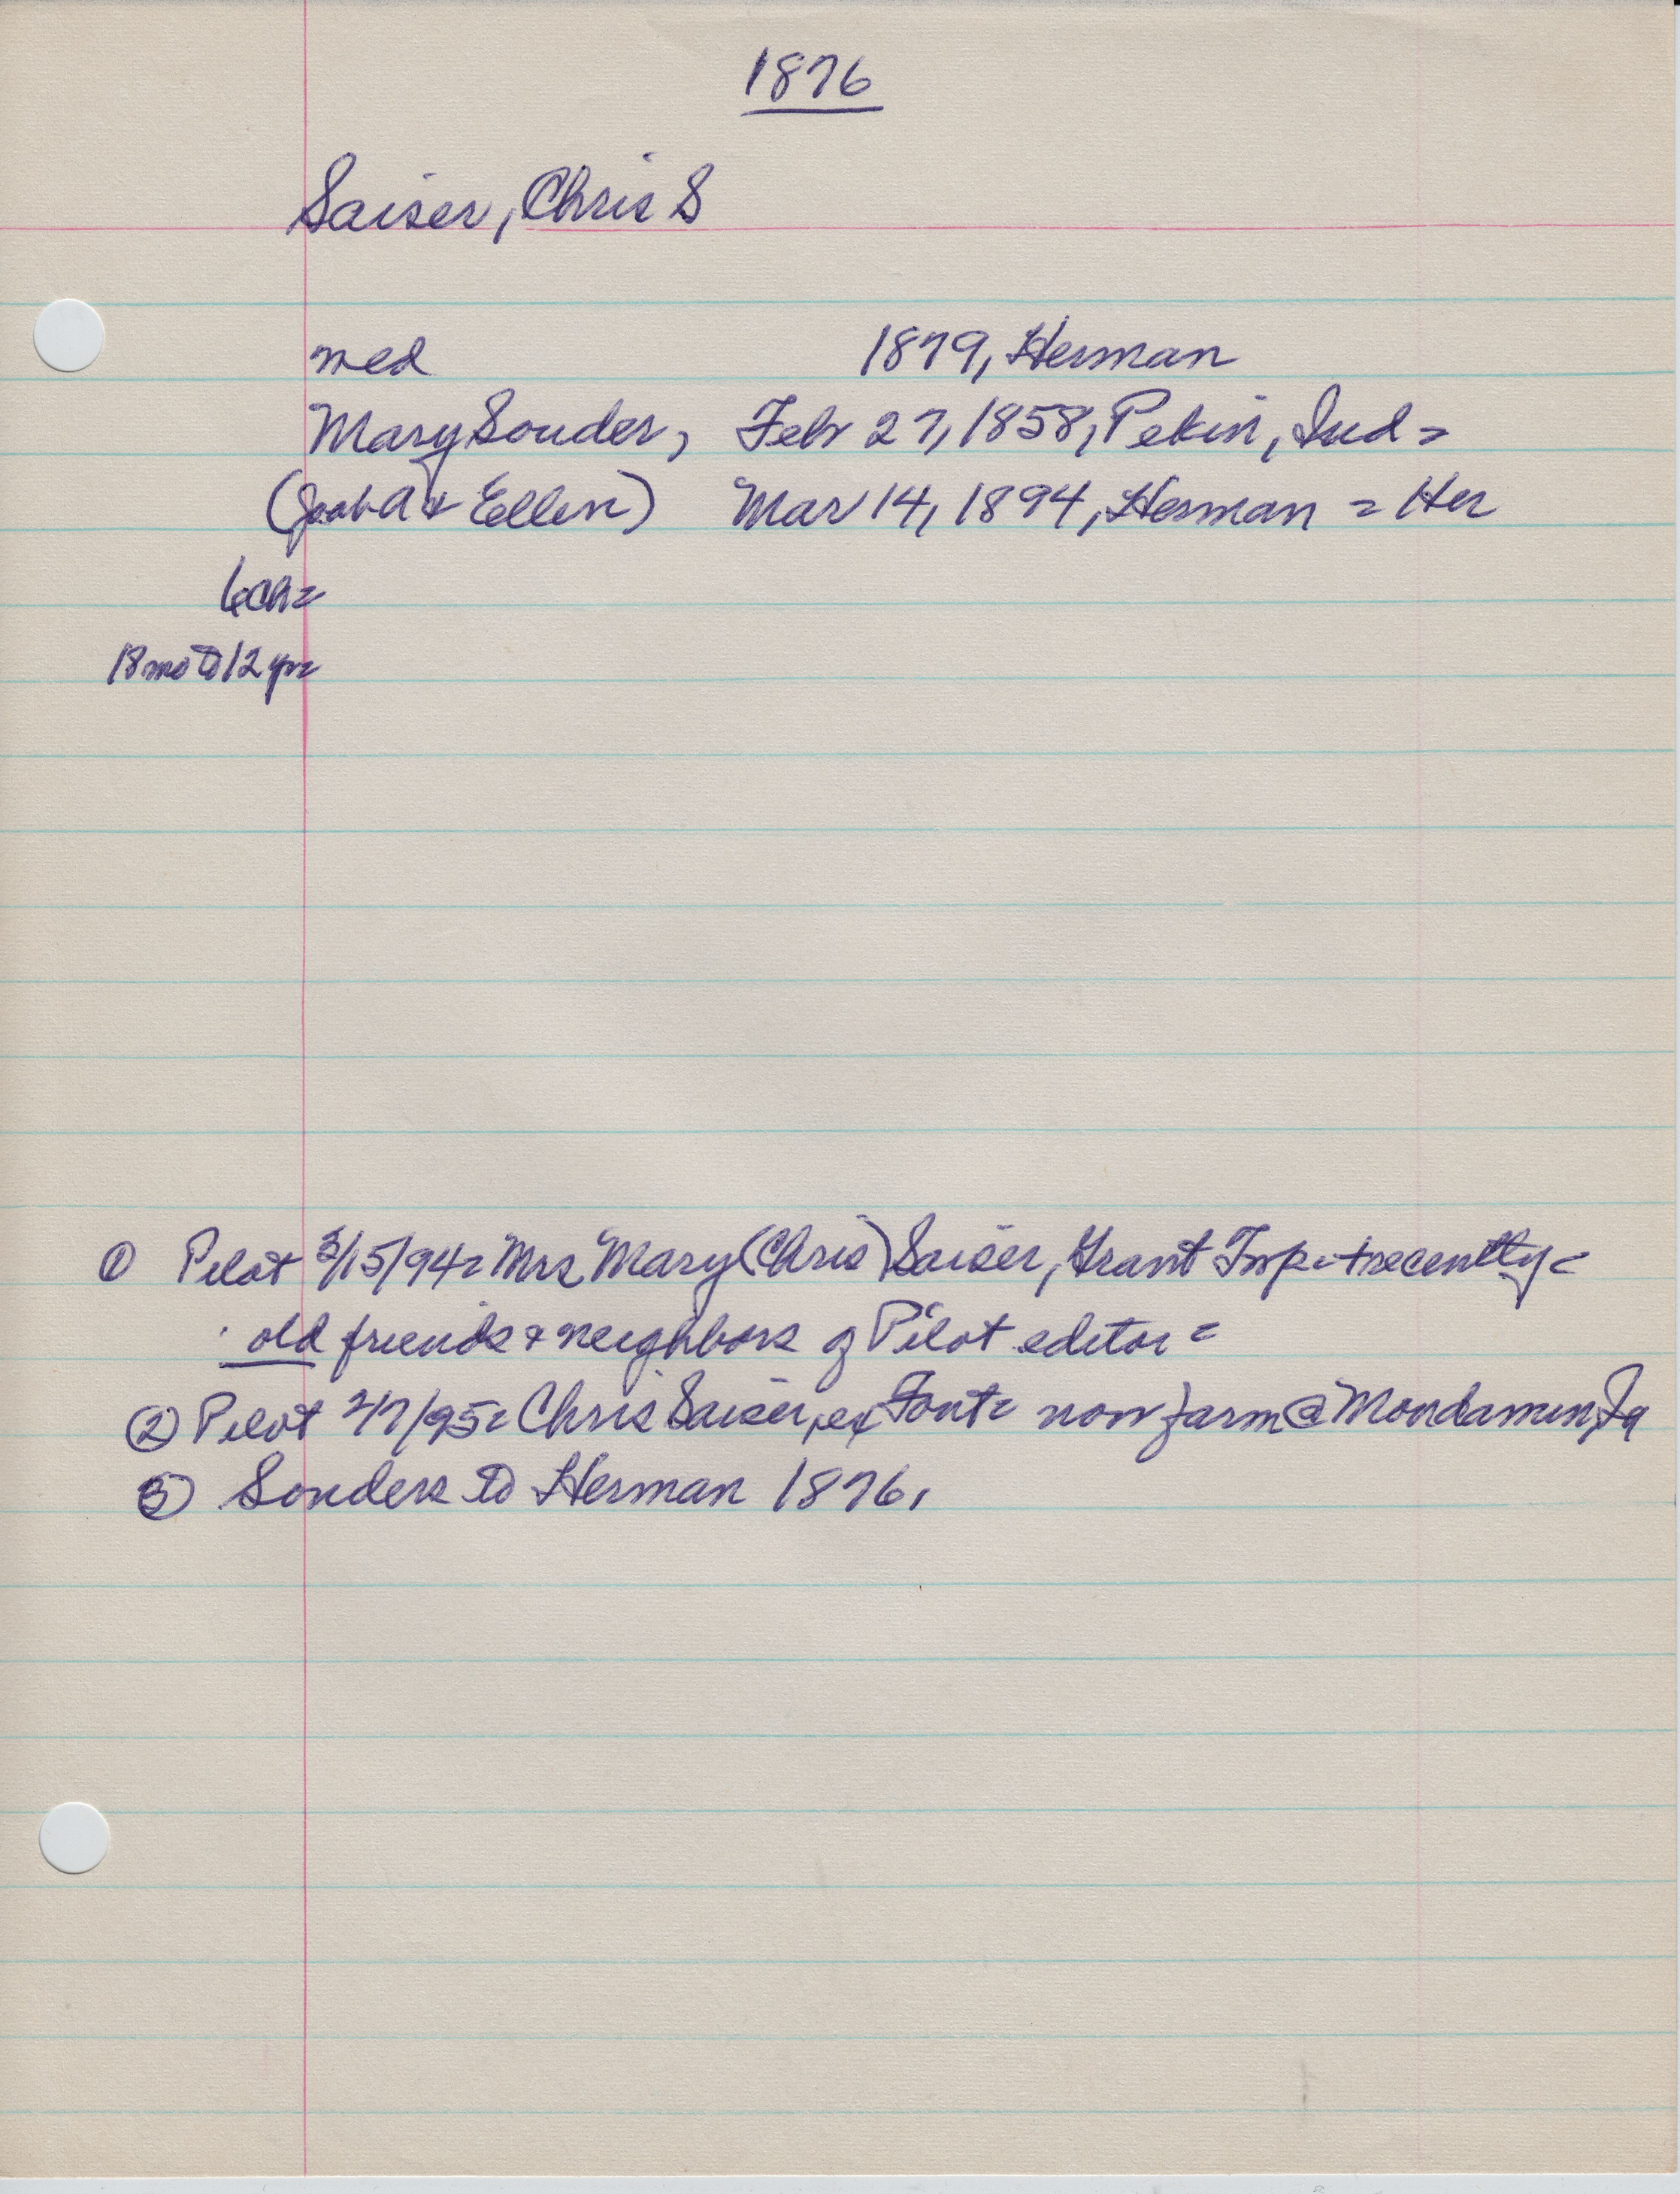 1876
Saiser, Chris S
med 1879, Herman
Mary Souder, Feb 27, 1858, Pekin, Ind =
( A & Ellen) Mar 14, 1894, Herman = Her
6 ch =
18 mo to 12 yr =
① Pilot 3/15/94 = Mrs Mary (Chris) Saiser, Grant Twp - + recently =
old friends & neighbors of Pilot editor =
② Pilot 2/7/95 = Chris Saiser, ex Font = now farm @ Mondamin, Ia
③ Souders to Herman 1876,